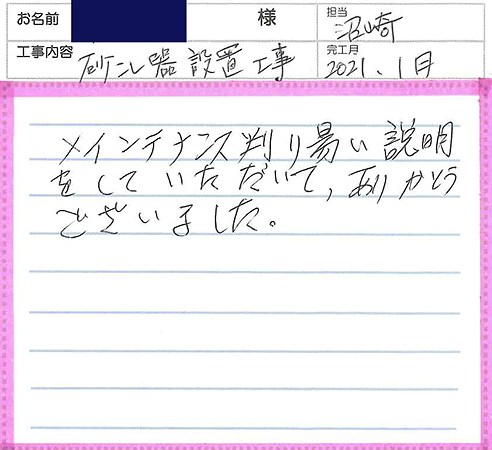 お名前 様 担当 沼崎
工事内容 砂こし器設置工事 完工月 2021.1月
メインテナンス判り易い説明
をしていただいて,ありがとう
ございました。